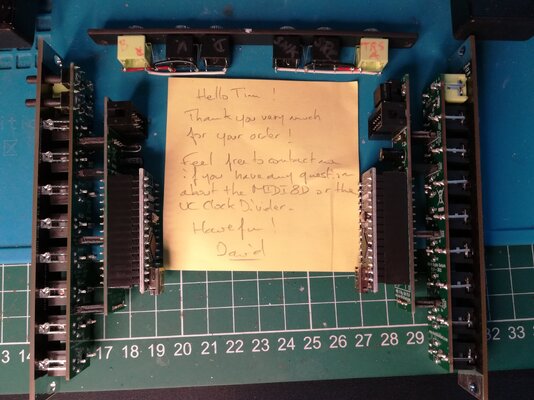 Hello Tim !
Thank you very much
for your order !
Feel free to contact me
if you have any question
about the MIDI8D or the
UC Clock Divider.
Have fun !
David
17 18 19 20 21 22 23 24 25 26 27 28 29 32 33
3 14
TRS
A
B